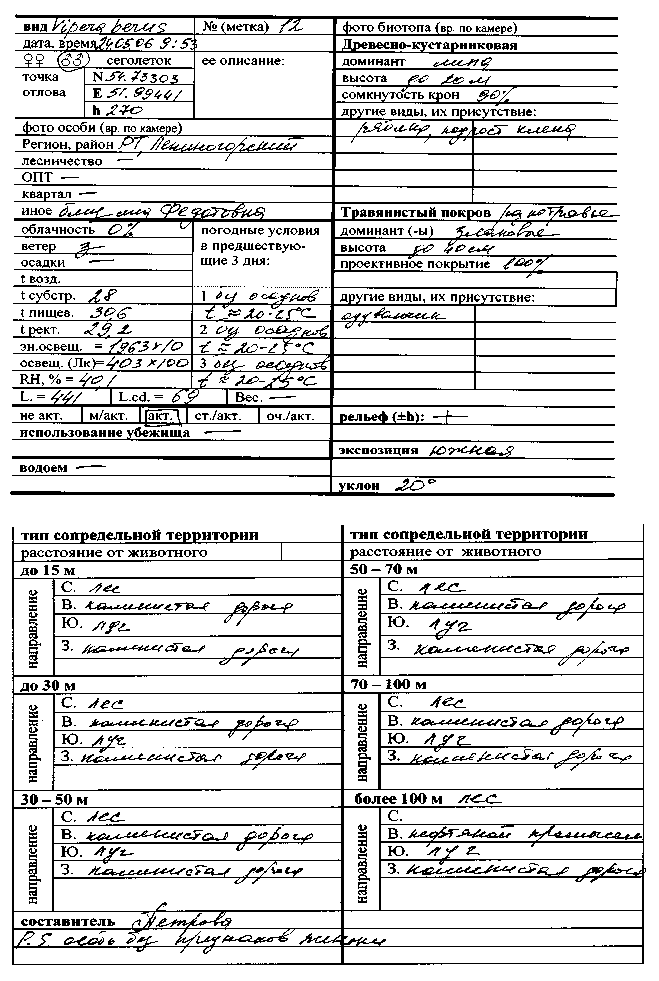 вид Vipera berus № (метка) 12
дата, время 240506 9:53
♀♀ ♂♂ сеголеток ее описание:
точка N 54.73303
отлова E 51.99441
h 270
фото особи (вр. по камере)
Регион, район РТ, Лениногорский
лесничество —
ОПТ —
квартал —
иное близ Федотовка
облачность 0% погодные условия
ветер З в предшествую-
осадки — щие 3 дня:
t возд.
t субстр. 28 1 без осадков
t пищев. 306 t ≈ 20-25°C
t рект. 29,2 2 без осадков
эн.освещ. = 1963×10 t ≈ 20-25°C
освещ. (Лк)=403×100 3 без осадков
RH, % = 401 t ≈ 20-25°C
L. = 441 L.cd. = 69 Вес. —
не акт. м/акт. акт. ст./акт. оч./акт.
использование убежища —
водоем —
фото биотопа (вр. по камере)
Древесно-кустарниковая
доминант липа
высота до 20 м
сомкнутость крон 90%
другие виды, их присутствие:
рябина, подрост клена
Травянистый покров разнотравье
доминант (-ы) злаковые
высота до 40 см
проективное покрытие 100%
другие виды, их присутствие:
одуванчик
рельеф (±h): +
экспозиция южная
уклон 20°
тип сопредельной территории
расстояние от животного
до 15 м
направление
С. лес
В. каменистая дорога
Ю. луг
З. каменистая дорога
до 30 м
направление
С. лес
В. каменистая дорога
Ю. луг
З. каменистая дорога
30 – 50 м
направление
С. лес
В. каменистая дорога
Ю. луг
З. каменистая дорога
составитель Петрова
P.S. особь без признаков линьки
тип сопредельной территории
расстояние от животного
50 – 70 м
направление
С. лес
В. каменистая дорога
Ю. луг
З. каменистая дорога
70 – 100 м
направление
С. лес
В. каменистая дорога
Ю. луг
З. каменистая дорога
более 100 м лес
направление
С.
В. нефтяной промысел
Ю. луг
З. каменистая дорога